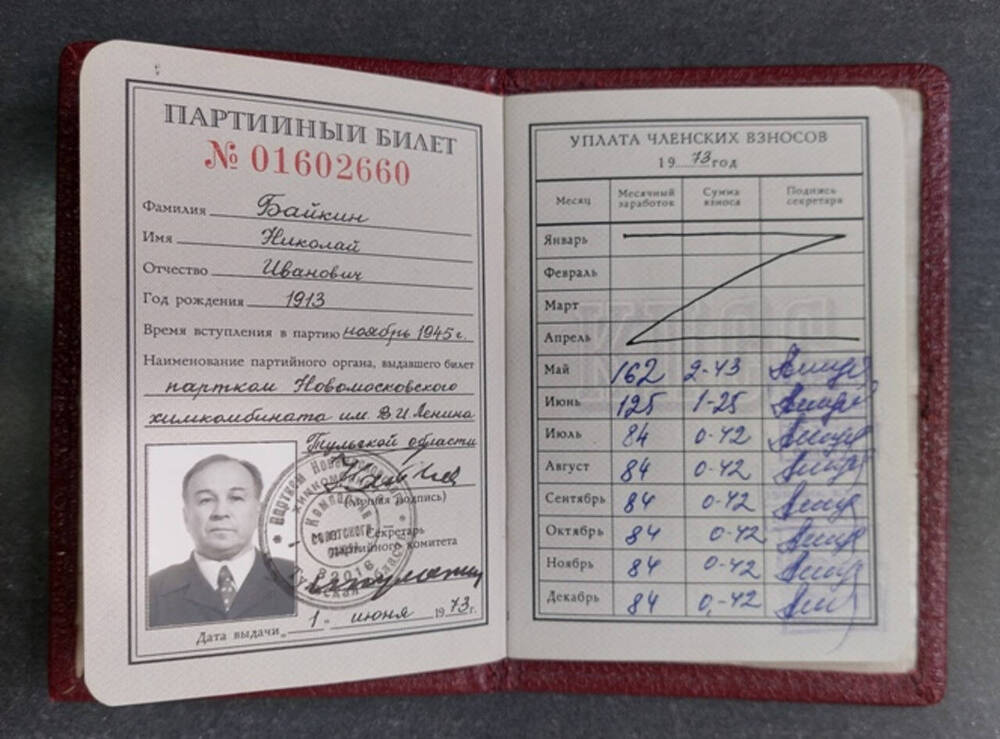 ПАРТИЙНЫЙ БИЛЕТ
№ 01602660
Фамилия Байкин
Имя Николай
Отчество Иванович
Год рождения 1913
Время вступления в партию ноябрь 1945 г.
Наименование партийного органа, выдавшего билет
партком Новомосковского
химкомбината им. В.И. Ленина
Тульской области
(личная подпись)
Секретарь
партийного комитета
Дата выдачи „1" июня 1973 г.
УПЛАТА ЧЛЕНСКИХ ВЗНОСОВ
1973 год
Месяц Месячный заработок Сумма взноса Подпись секретаря
Январь
Февраль
Март
Апрель
Май 162 2-43
Июнь 125 1-25
Июль 84 0-42
Август 84 0-42
Сентябрь 84 0-42
Октябрь 84 0-42
Ноябрь 84 0-42
Декабрь 84 0,-42